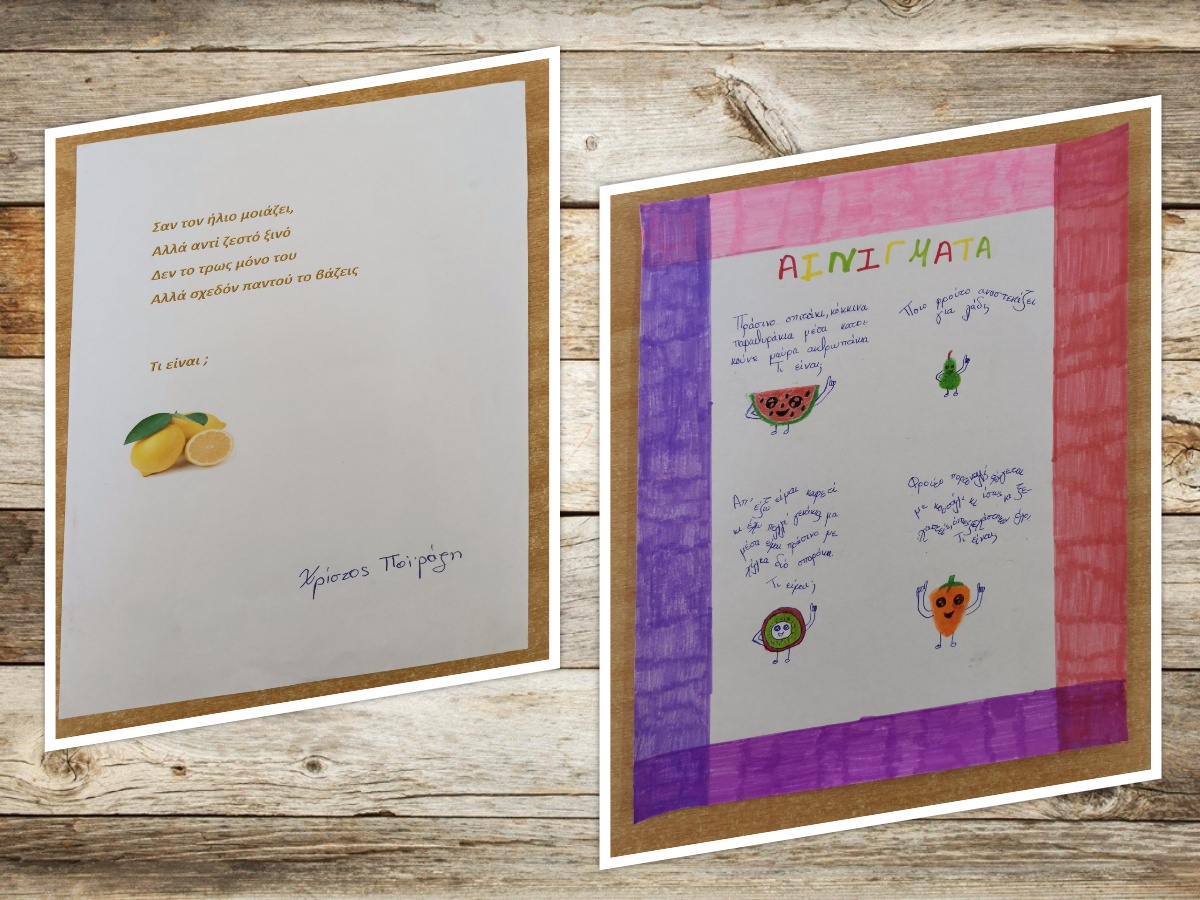 Σαν τον ήλιο μοιάζει,
Αλλά αντί ζεστό ξινό
Δεν το τρως μόνο του
Αλλά σχεδόν παντού το βάζεις
Τι είναι ;
Χρίστος Ποϊράζη
ΑΙΝΙΓΜΑΤΑ
Πράσινο σπιτάκι, κόκκινα
παραθυράκια μέσα κατοι-
κούνε μαύρα ανθρωπάκια
Τι είναι;
Ποιο φρούτο αναστενάζει
για λάδι;
Απ' έξω είμαι καφετί
κι έχω πολλή
μέσα είμαι πράσινο με
δυο σποράκια.
Τι είμαι;
Φρούτο
με κι
Τι είναι;